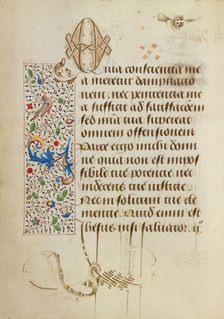 Quia conscientia me
a meretur damnatio
nem. nec penitencia me
a sufficit ad satisfactio
sed mia tua superat
omnem offensionem
Parce ergo michi domi
ne quia non est impos
sibile tue potencie nec
indecens tue iusticie.
Nec insolitum tue cle
mentie. Quid enim est
ihesus nisi saluator